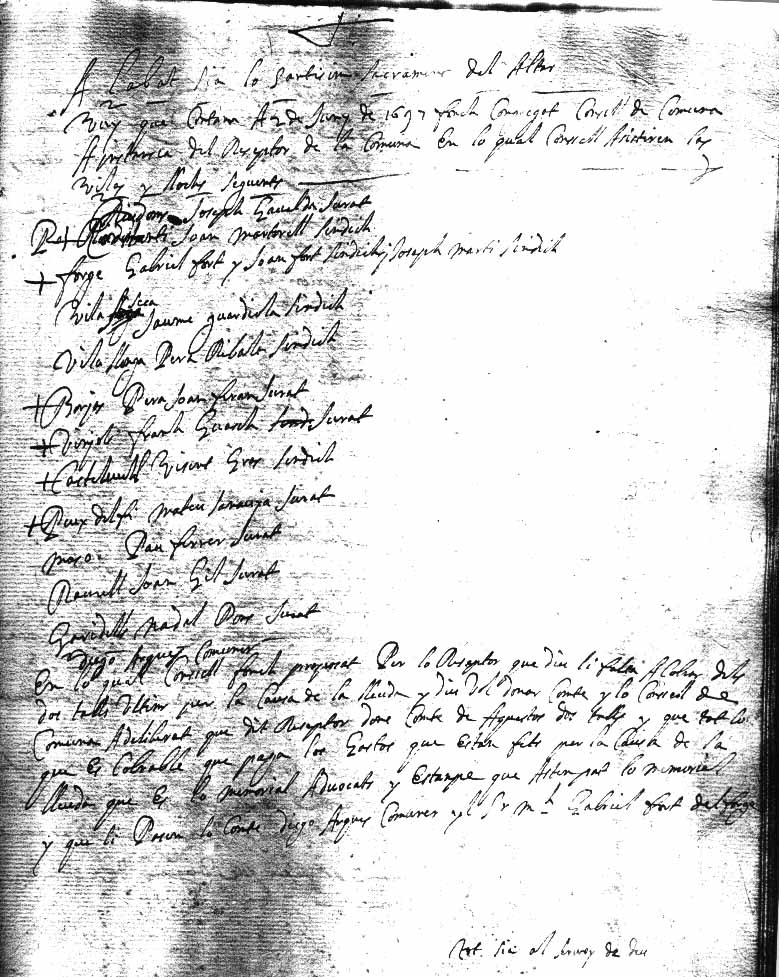 Alabat sia lo Santissim Sacrament del Altar
Vuy que Contam A 2 de Juny de 1697 fonch Convocat Consell de Comuna
A instancia del Reseptor de la Comuna En lo qual Consell Asistiren las
Vilas y llochs seguents
Riudoms Joseph Gavaldá Jurat
Joan Martorell Sindich
+ forge Gabriel fort y Joan fort Sindichs Joseph marti Sindich
Vilaseca Jaume guardiola Sindich
Vilallonga Pera Ribalta Sindich
+ Borjas Pera Joan Jurat
+ Vinyols franch Guasch Jurat
+ Castellvell Sindich
+ Puigdelfi mateu Jurat
Pau ferrer Jurat
Raurell Joan Gil Jurat
Garidells nadal Pons Jurat
diego Arques Comuner
En lo qual Consell fonch proposat Per lo Reseptor que diu li falta A Cobrar dels
dos talls Ultims per la Causa de la lleuda y diu vol donar Comte y lo Consell de
Comuna A deliberat que dit Reseptor done Comte de Aquestos dos talls y que tot lo
que Es Cobrable que paga los Gastos que Estan fets per la Causa de la
lleuda que Es lo memorial Advocats y Estampe que Astempat lo memorial
y que li Pasen lo Comte diego Arques Comuner y lo Sr Gabriel fort del forge
tot sia al servey de deu